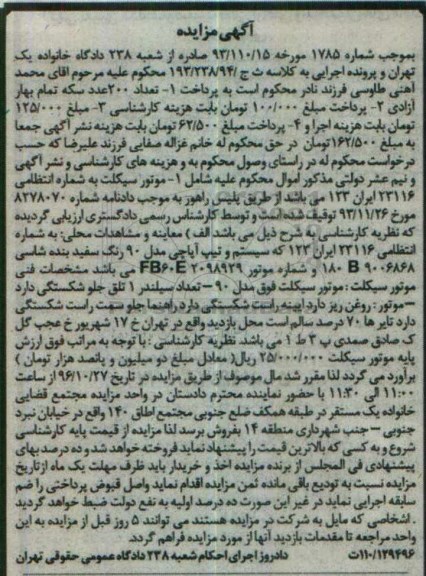 آگهی مزایده
بموجب شماره ۱۷۸۵ مورخه ۹۳/۱۱۰/۱۵ صادره از شعبه ۲۳۸ دادگاه خانواده یک
تهران و پرونده اجرایی به کلاسه ث ج /۱۹۳/۲۳۸/۹۴ محکوم علیه مرحوم اقای محمد
آهنی طاوسی فرزند نادر محکوم است به پرداخت ۱- تعداد ۲۰۰عدد سکه تمام بهار
آزادی ۲- پرداخت مبلغ ۱۰۰/۰۰۰ تومان بابت هزینه کارشناسی ۳- مبلغ ۱۲۵/۰۰۰
تومان بابت هزینه اجرا و ۴- پرداخت مبلغ ۶۲/۵۰۰ تومان بابت هزینه نشر آگهی جمعا
به مبلغ ۱۶۲/۵۰۰تومان در حق محکوم له خانم غزاله صفایی فرزند علیرضا که حسب
درخواست محکوم له در راستای وصول محکوم به و هزینه های کارشناسی و نشر آگهی
و نیم عشر دولتی مذکور اموال محکوم علیه شامل ۱- موتور سیکلت به شماره انتظامی
۲۳۱۱۶ ایران ۱۲۳ می باشد از طریق پلیس راهور به موجب دادنامه شماره ۸۲۷۸۰۷۰
مورخ ۹۳/۱۱/۲۶ توقیف شده است و توسط کارشناس رسمی دادگستری ارزیابی گردیده
که نظریه کارشناسی به شرح ذیل می باشد الف ) معاینه و مشاهدات محلی: به شماره
انتظامی ۲۳۱۱۶ ایران ۱۲۳ که سیستم و تیپ آپاچی مدل ۹۰ رنگ سفید بنده شاسی
۱۸۰ B ۹۰۰۶۸۶۸ و شماره موتور FB۶۰E ۲۰۹۸۹۲۹ می باشد مشخصات فنی
موتور سیکلت : موتور سیکلت فوق مدل ۹۰ – تعداد سیلندر ۱ تلق جلو شکستگی دارد
– موتور : روغن ریز دارد ایینه راست شکستگی دارد راهنما جلو سمت راست شکستگی
دارد تایر ها ۷۰ درصد سالم است محل بازدید واقع در تهران خ ۱۷ شهریور خ عجب گل
ک صادق صمدی پ ۳ ط ۱ می باشد نظریه کارشناسی : با توجه به مراتب فوق ارزش
پایه موتور سیکلت ۲۵/۰۰۰/۰۰۰ ریال( معادل مبلغ دو میلیون و پانصد هزار تومان )
برآورد می گردد لذا مقرر شد مال موصوف از طریق مزایده در تاریخ ۹۶/۱۰/۲۷ از ساعت
۱۱:۰۰ الی ۱۱:۳۰ با حضور نماینده محترم دادستان در واحد مزایده مجتمع قضایی
خانواده یک مستقر در طبقه همکف ضلع جنوبی مجتمع اطاق ۱۴۰ واقع در خیابان نبرد
جنوبی – جنب شهرداری منطقه ۱۴ بفروش برسد لذا مزایده از قیمت پایه کارشناسی
شروع و به کسی که بالاترین قیمت را پیشنهاد نماید فروخته خواهد شد و ده درصد بهای
پیشنهادی فی المجلس از برنده مزایده اخذ و خریدار باید ظرف مهلت یک ماه از تاریخ
مزایده نسبت به تودیع باقی مانده ثمن مزایده اقدام نماید واصل قبوض پرداختی را ضم
سابقه اجرایی نماید در غیر این صورت ده درصد اولیه به نفع دولت ضبط خواهد گردید
. اشخاصی که مایل به شرکت در مزایده هستند می توانند ۵ روز قبل از مزایده به این
واحد مراجعه تا مقدمات بازدید آنها از مورد مزایده فراهم گردد.
۱۱۰/۱۲۹۴۹۶ث دادورز اجرای احکام شعبه ۲۳۸ دادگاه عمومی حقوقی تهران